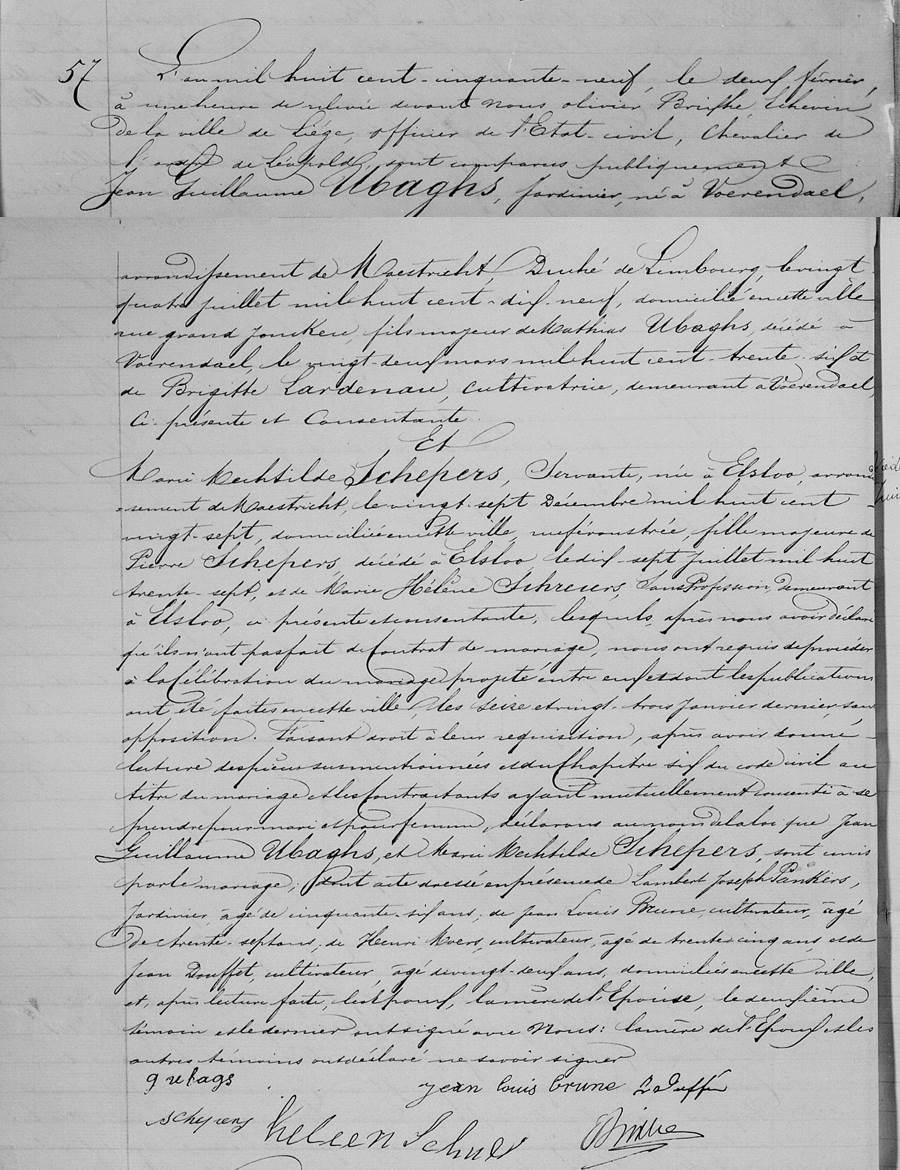 57 L'an mil huit cent cinquante-neuf, le deux février,
à une heure de relevée devant nous, olivier Brixhe, Echevin
de la ville de Liége, officier de l'Etat-civil, Chevalier de
l'ordre de Léopold, sont comparus publiquement
Jean Guillaume Ubaghs, Jardinier, né à Voerendael,
arrondissement de Maestricht Duché de Limbourg, le vingt
quatre juillet mil huit cent-dix-neuf, domicilié en cette ville
rue grand Jonckeu, fils majeur de Mathias Ubaghs, décédé à
Voerendael, le vingt-deux mars mil huit cent-trente-six et
de Brigitte Lardenau, cultivatrice, demeurant à Voerendael,
Ci-présente et Consentante.
Et
Marie Mechtilde Schepers, Servante, née à Elsloo, arrondis-
-sement de Maestricht, le vingt-sept Décembre mil huit cent
vingt-sept, domiciliée en cette ville, fille majeure de
Pierre Schepers, décédé à Elsloo, le dix-sept juillet mil huit
trente-sept, et de Marie Hélène Schreurs, Sans Profession, demeurant
à Elsloo, ci présente et consentante, lesquels, après nous avoir déclaré
qu'ils n'ont pas fait de Contrat de mariage, nous ont requis de procéder
à la Célébration du mariage projeté entre eux et dont les publications
ont été faites en cette ville, les seize et vingt-trois janvier dernier, sans
opposition. Faisant droit à leur requisition, après avoir donné
lecture des pièces susmentionnées et du Chapitre six du code civil au
titre du mariage et les Contractants ayant mutuellement consenti à se
prendre pour mari et pour femme, déclarons au nom de la loi que Jean
Guillaume Ubaghs, et Marie Mechtilde Schepers, sont unis
par le mariage; Dont acte dressé en présence de Lambert Joseph Pankers,
Jardinier âgé de cinquante-six ans, de Jean Louis Brune, cultivateur, âgé
de trente-sept ans, de Henri Moers, cultivateur, âgé de trente cinq ans et de
Jean Douffet, cultivateur, âgé de vingt-deux ans, domiciliés en cette ville,
et, après lecture faite, l'époux, la mère de l'Epouse, le deuxième
témoin et le dernier ont signé avec Nous: la mère de l'Epoux et les
autres témoins ont déclaré ne savoir signer
jean louis brune
schepers
Heleen